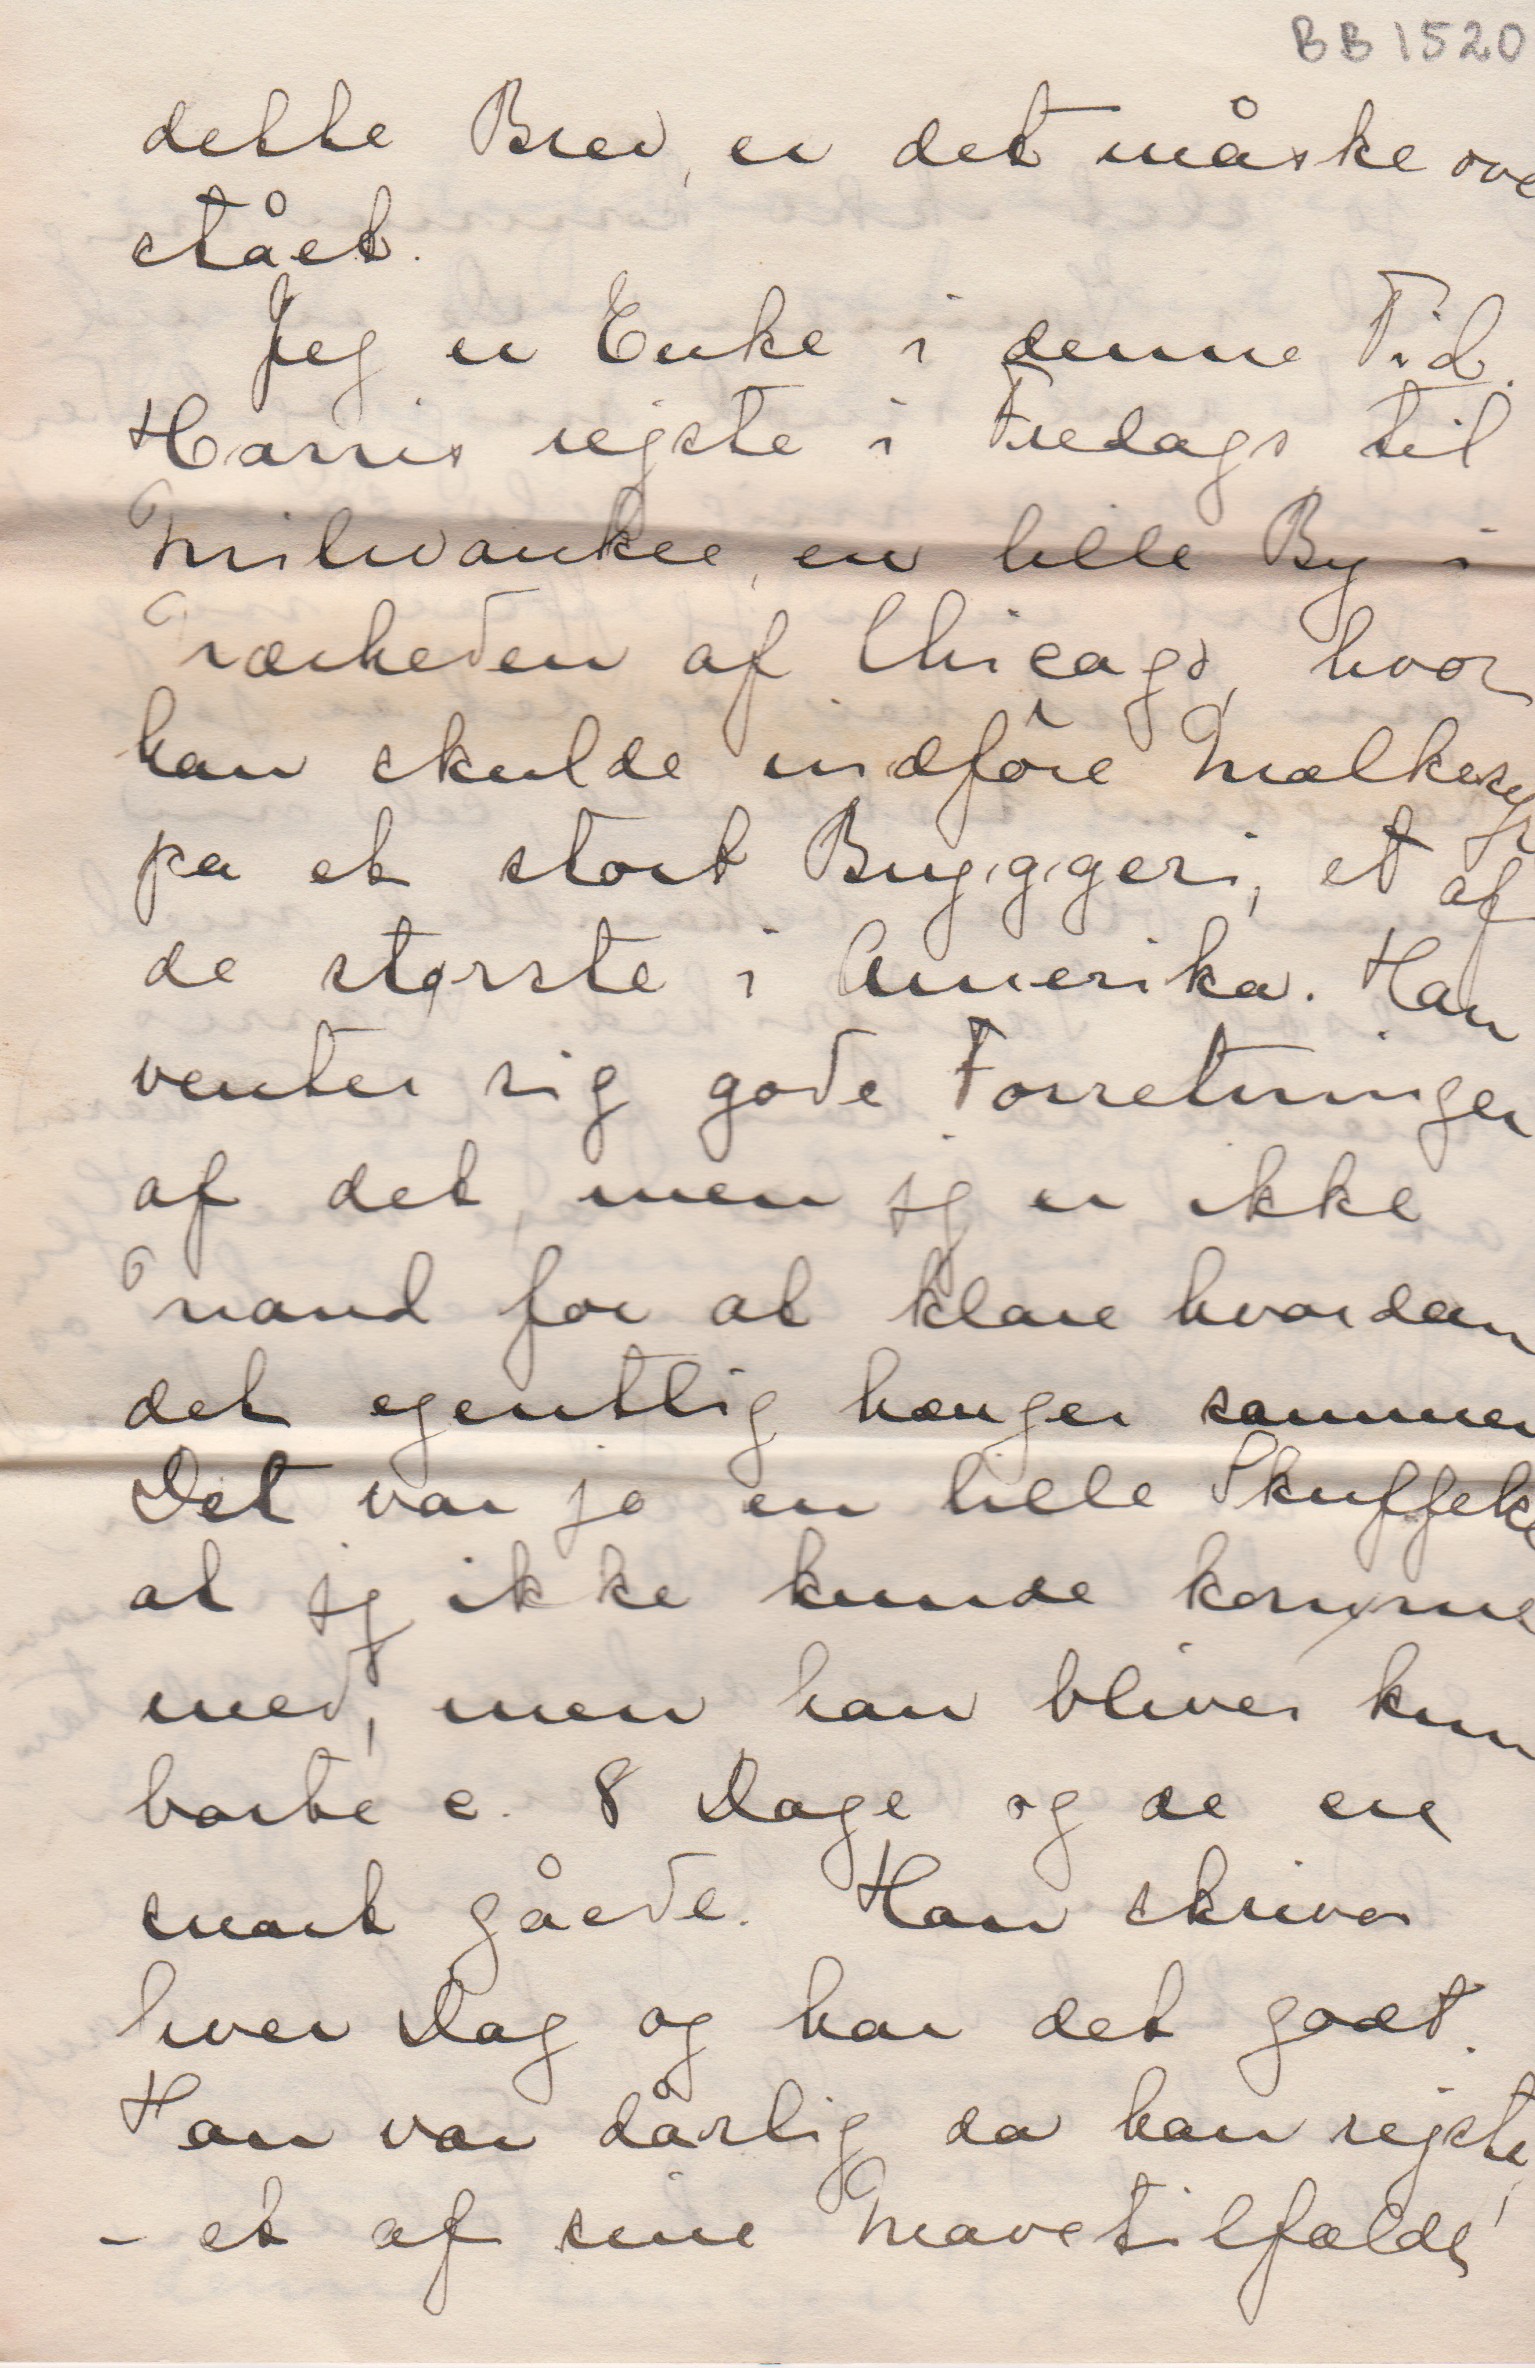 BB 1520
dette Brev, er det måske ove
stået.
Jeg er Enke i denne Tid.
Harris rejste i Fredags til
Milwaukee, en lille By i
Nærheden af Chicago, hvor
han skulde indføre Mælkesyre
pa et stort Bryggeri, et af
de største i Amerika. Han
venter sig gode Forretninger
af det, men jg er ikke
Mand for at klare hvordan
det egentlig hænger sammen
Det var jo en lille Skuffelse
at jg ikke kunde komme
med, men han bliver kun
borte c. 8 Dage og de ere
snart gåede. Han skriver
hver Dag og har det godt.
Han var dårlig da han rejste,
- et af sine Mavetilfælde